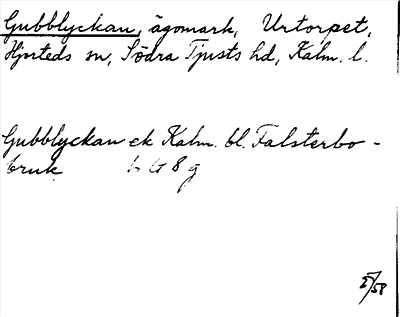 Gubblyckan, ägomark, Urtorpet,
Hjorteds sn, Södra Tjusts hd, Kalm. l.
Gubblyckan ek Kalm. bl. Falsterbo-
bruk 6 G 8 g
5/58